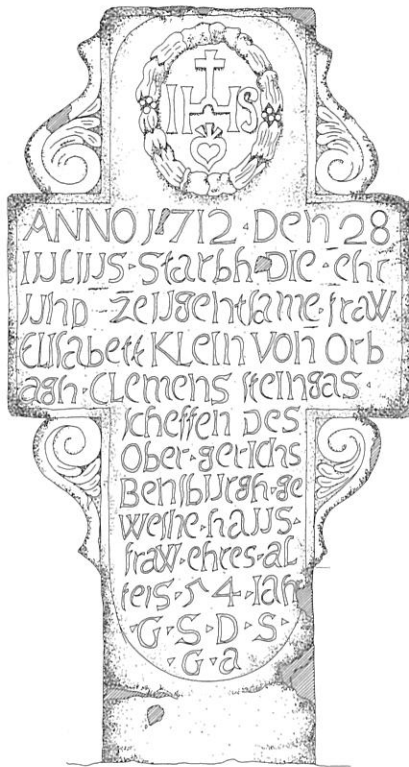 IHS
ANNO 1712 · Den 28
IULIUS · Starbh · Die · ehr
und · zeugentsame · fraw
Elisabett Klein von Orb
agh · Clemens steingas ·
scheffen Des
Ober · gerichs
Bensburgh · ge
wesne · haus ·
fraw · ehres · al
ters · 54 · Iah
· G · S · D · S ·
· G · a